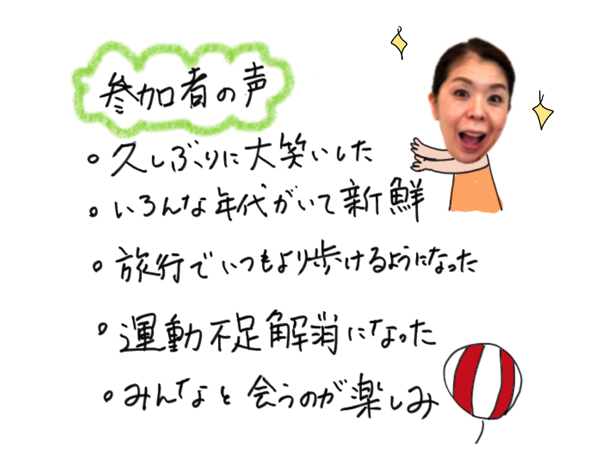 参加者の声
・久しぶりに大笑いした
・いろんな年代がいて新鮮
・旅行でいつもより歩けるようになった
・運動不足解消になった
・みんなと会うのが楽しみ